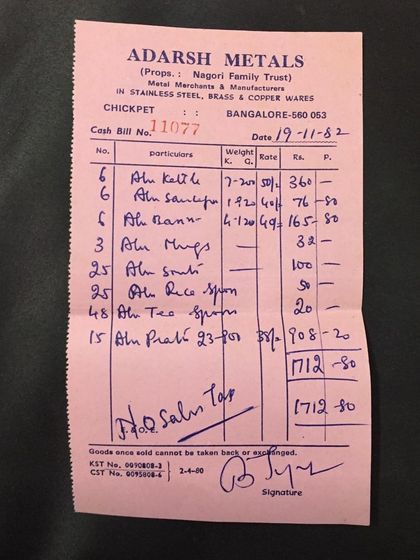 ADARSH METALS
(Props. : Nagori Family Trust)
Metal Merchants & Manufacturers
IN STAINLESS STEEL, BRASS & COPPER WARES
CHICKPET : : BANGALORE-560 053
Cash Bill No. 11077 Date 19-11-82
No. particulars Weight K. G. Rate Rs. P.
6 Alu Kettle 7-200 50/- 360 —
6 Alu 1-920 40/- 76-80
6 Alu 4-120 40/- 165-80
3 Alu Mugs — 32 —
25 Alu — 100 —
25 Alu Rice Spoon 50 —
48 Alu Tea Spoon 20 —
15 Alu 23-900 38/- 908-20
1712-80
1712-80
Sales Tax
E. & O.E.
Goods once sold cannot be taken back or exchanged.
KST No. 0090808-3
CST No. 0095808-6 2-4-80
Signature